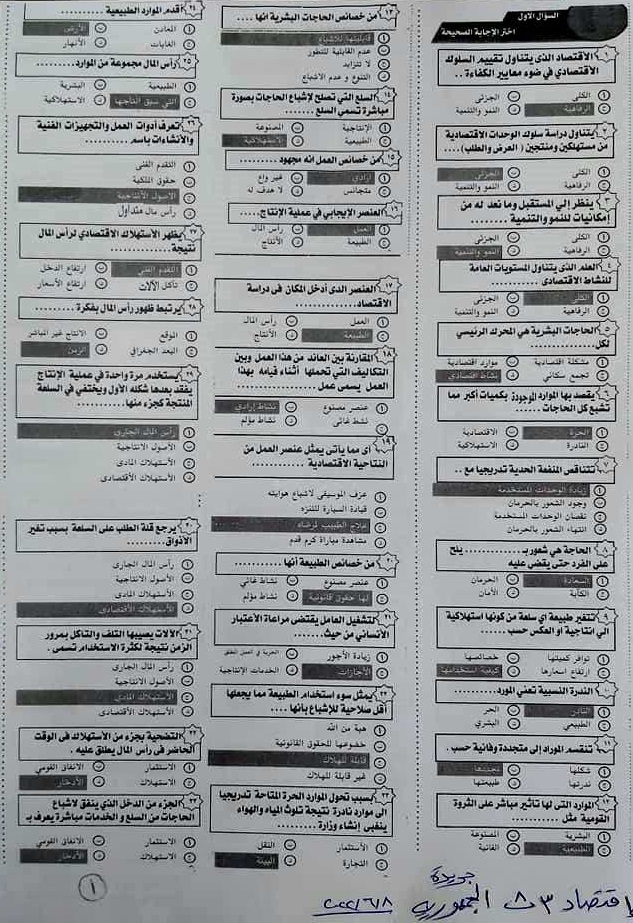 السؤال الأول
اختر الإجابة الصحيحة
١ الاقتصاد الذى يتناول تقييم السلوك
الاقتصادي في ضوء معايير الكفاءة ..
أ الكلى ب الجزئى
ج الرفاهية د النمو والتنمية
٢ يتناول دراسة سلوك الوحدات الاقتصادية
من مستهلكين ومنتجين ( العرض والطلب) ....
أ الكلى ب الجزئى
ج الرفاهية د النمو والتنمية
٣ ينظر إلي المستقبل وما نعد له من
إمكانيات للنمو والتنمية ..........
أ الكلى ب الجزئى
ج الرفاهية د النمو والتنمية
٤ العلم الذى يتناول المستويات العامة
للنشاط الاقتصادي ..........
أ الكلى ب الجزئى
ج الرفاهية د النمو والتنمية
٥ الحاجات البشرية هي المحرك الرئيسي
لكل..........
أ مشكلة اقتصادية ب موارد اقتصادية
ج تجمع سكاني د نشاط اقتصادى
٦ يقصد بها الموارد الموجودة بكميات أكبر مما
تشبع كل الحاجات ..........
أ الحرة ب الاقتصادية
ج النادرة د الاستهلاكية
٧ تتناقص المنفعة الحدية تدريجيا مع ..
أ زيادة الوحدات المستخدمة
ب وجود الشعور بالحرمان
ج نقصان الوحدات المستخدمة
د انتهاء الشعور بالحرمان
٨ الحاجة هي شعور بـ .......... يلح
على الفرد حتى يقضي عليه
أ السعادة ب الحرمان
ج الكآبة د الأمان
٩ تتغير طبيعة اي سلعة من كونها استهلاكية
الي انتاجية أو العكس حسب .....
أ توافر كميتها ب خصائصها
ج ارتفاع اسعارها د كيفية استخدامها
١٠ الندرة النسبية تعني المورد..........
أ النادر ب الحر
ج الطبيعي د البشري
١١ تنقسم الموراد إلى متجددة وفانية حسب .
أ شكلها ب تجددها
ج ندرتها د طبيعتها
١٢ الموارد التى لها تأثير مباشر على الثروة
القومية مثل ..........
أ البشرية ب المصنوعة
ج الطبيعية د الفانية
١٣ من خصائص الحاجات البشرية انها ....
أ قابليتها للاشباع
ب عدم القابلية للتطور
ج لا تتزايد
د التنوع و عدم الاشباع
١٤ السلع التي تصلح لإشباع الحاجات بصورة
مباشرة تسمي السلع ..........
أ الإنتاجية ب المصنوعة
ج الطبيعية د الاستهلاكية
١٥ من خصائص العمل انه مجهود ..........
أ ارادي ب غير واع
ج متجانس د لا هدف له
١٦ العنصر الإيجابي في عملية الإنتاج.....
أ العمل ب رأس المال
ج الطبيعة د الأنتاج
١٧ العنصر الذى أدخل المكان فى دراسة
الاقتصاد..........
أ العمل ب رأس المال
ج الطبيعة د الأنتاج
١٨ المقارنة بين العائد من هذا العمل وبين
التكاليف التي تحملها أثناء قيامه بهذا
العمل يسمى عمل....
أ عنصر مصنوع ب نشاط إرادي
ج نشط غائى د نشاط مؤلم
١٩ أى مما يأتى يمثل عنصر العمل من
الناحية الاقتصادية ..........
أ عزف الموسيقى لاشباع هوايته
ب قيادة السيارة للتنزه
ج علاج الطبيب لمرضاه
د مشاهدة مباراة كرم قدم
٢٠ من خصائص الطبيعة أنها ..........
أ عنصر مصنوع ب نشاط غائي
ج لها حقوق قانونية د نشاط مؤلم
٢١ لتشغيل العامل يقتضى مراعاة الأعتبار
الأنساني من حيث.......
أ زيادة الأجور ب الحرية في العمل المطلق
ج الأجازات د الخدمات الإنتاجية
٢٢ يمثل سوء استخدام الطبيعة مما يجعلها
أقل صلاحية للإشباع بأنها ....
أ هبة من الله
ب خضوعها للحقوق القانونية
ج قابلة للهلاك
د غير قابلة للهلاك
٢٣ بسبب تحول الموارد الحرة المتاحة تدريجيا
الى موارد نادرة نتيجة تلوث المياه والهواء
ينبغى إنشاء وزارة ........
أ الأستثمار ب النقل
ج التجارة د البيئة
٢٤ أقدم الموارد الطبيعية ..........
أ المعادن ب الأرض
ج الغابات د الأنهار
٢٥ رأس المال مجموعة من الموارد..........
أ الطبيعية ب البشرية
ج التي سبق انتاجها د الاستهلاكية
٢٦ تعرف أدوات العمل والتجهيزات الفنية
والأنشاءات باسم ..........
أ التقدم الفنى
ب حقوق الملكية
ج الأصول الأنتاجية
د رأس مال متداول
٢٧ يظهر الأستهلاك الاقتصادى لرأس المال
نتيجة..........
أ التقدم الفنى ب ارتفاع الدخل
ج تآكل الآلات د ارتفاع الأسعار
٢٨ يرتبط ظهور رأس المال بفكرة ..........
أ الموقع ب الانتاج غير المباشر
ج البعد الجغرافي د الزمن
٢٩ يستخدم مرة واحدة في عملية الإنتاج
يفقد بعدها شكله الأول ويختفي في السلعة
المنتجة كجزء منها..........
أ رأس المال الجارى
ب الأصول الانتاجية
ج الاستهلاك المادى
د الاستهلاك الأقتصادى
٣٠ يرجع قلة الطلب على السلعة بسبب تغير
الأذواق..........
أ رأس المال الجارى
ب الأصول الانتاجية
ج الأستهلاك المادى
د الأستهلاك الأقتصادى
٣١ الآلات يصيبها التلف والتآكل بمرور
الزمن نتيجة لكثرة الاستخدام تسمى .
أ رأس المال الجارى
ب الأصول الانتاجية
ج الاستهلاك المادى
د الأستهلاك الأقتصادى
٣٢ التضحية بجزء من الأستهلاك فى الوقت
الحاضر فى رأس المال يطلق عليه .
أ الاستثمار ب الانفاق القومي
ج الاستهلاك د الأدخار
٣٣ الجزء من الدخل الذي ينفق لاشباع
الحاجات من السلع و الخدمات مباشرة يعرف بـ
أ الاستثمار ب الانفاق القومى
ج الاستهلاك د الأدخار
١
اقتصاد ٣ث جريدة الجمهورية ٨/٦/٢٠٢١